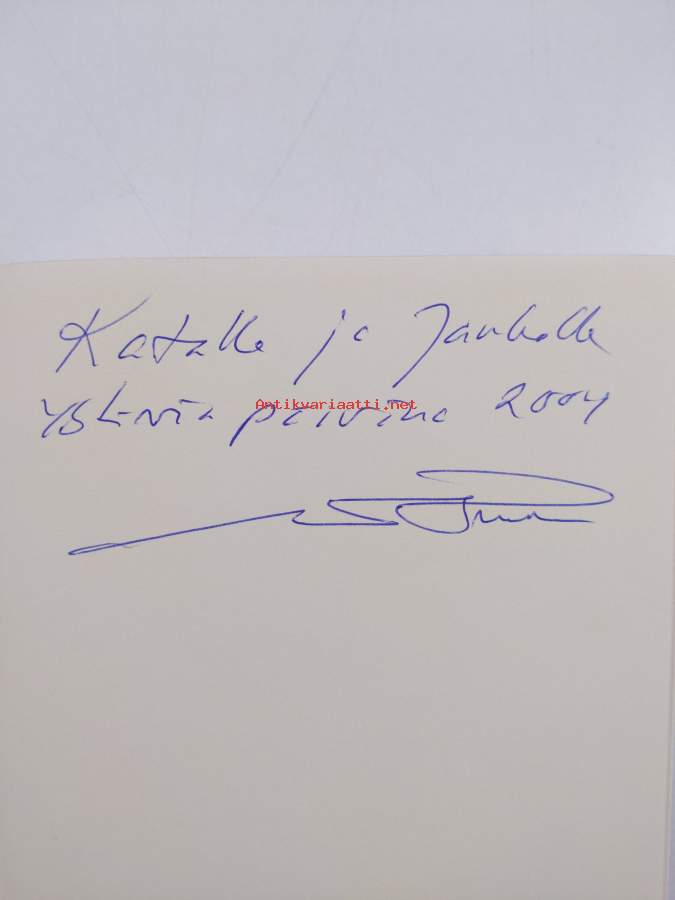 Katalle ja Jaukolle
Ystävän päivänä 2004
Antikvariaatti.net